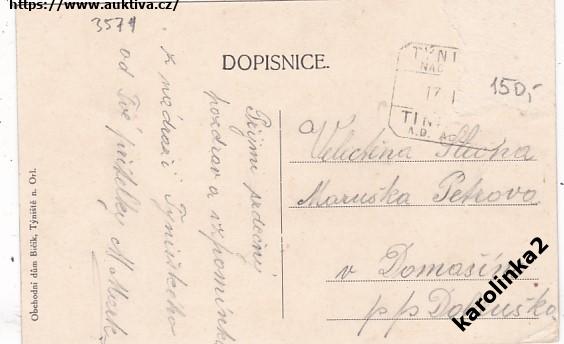 https://www.auktiva.cz/
3571
DOPISNICE.
TÝNI
NAD
17 I
TINI
A.D. AD
150,-
Přijmi srdečný
pozdrav a vzpomínku
z nádraží Týnišťského
od Tvé přítelky M.
Velectěná Slečna
Maruška Petrova
v Domašín
p p Dobruška
Obchodní dům Bičík, Týniště n. Orl.
karolinka2